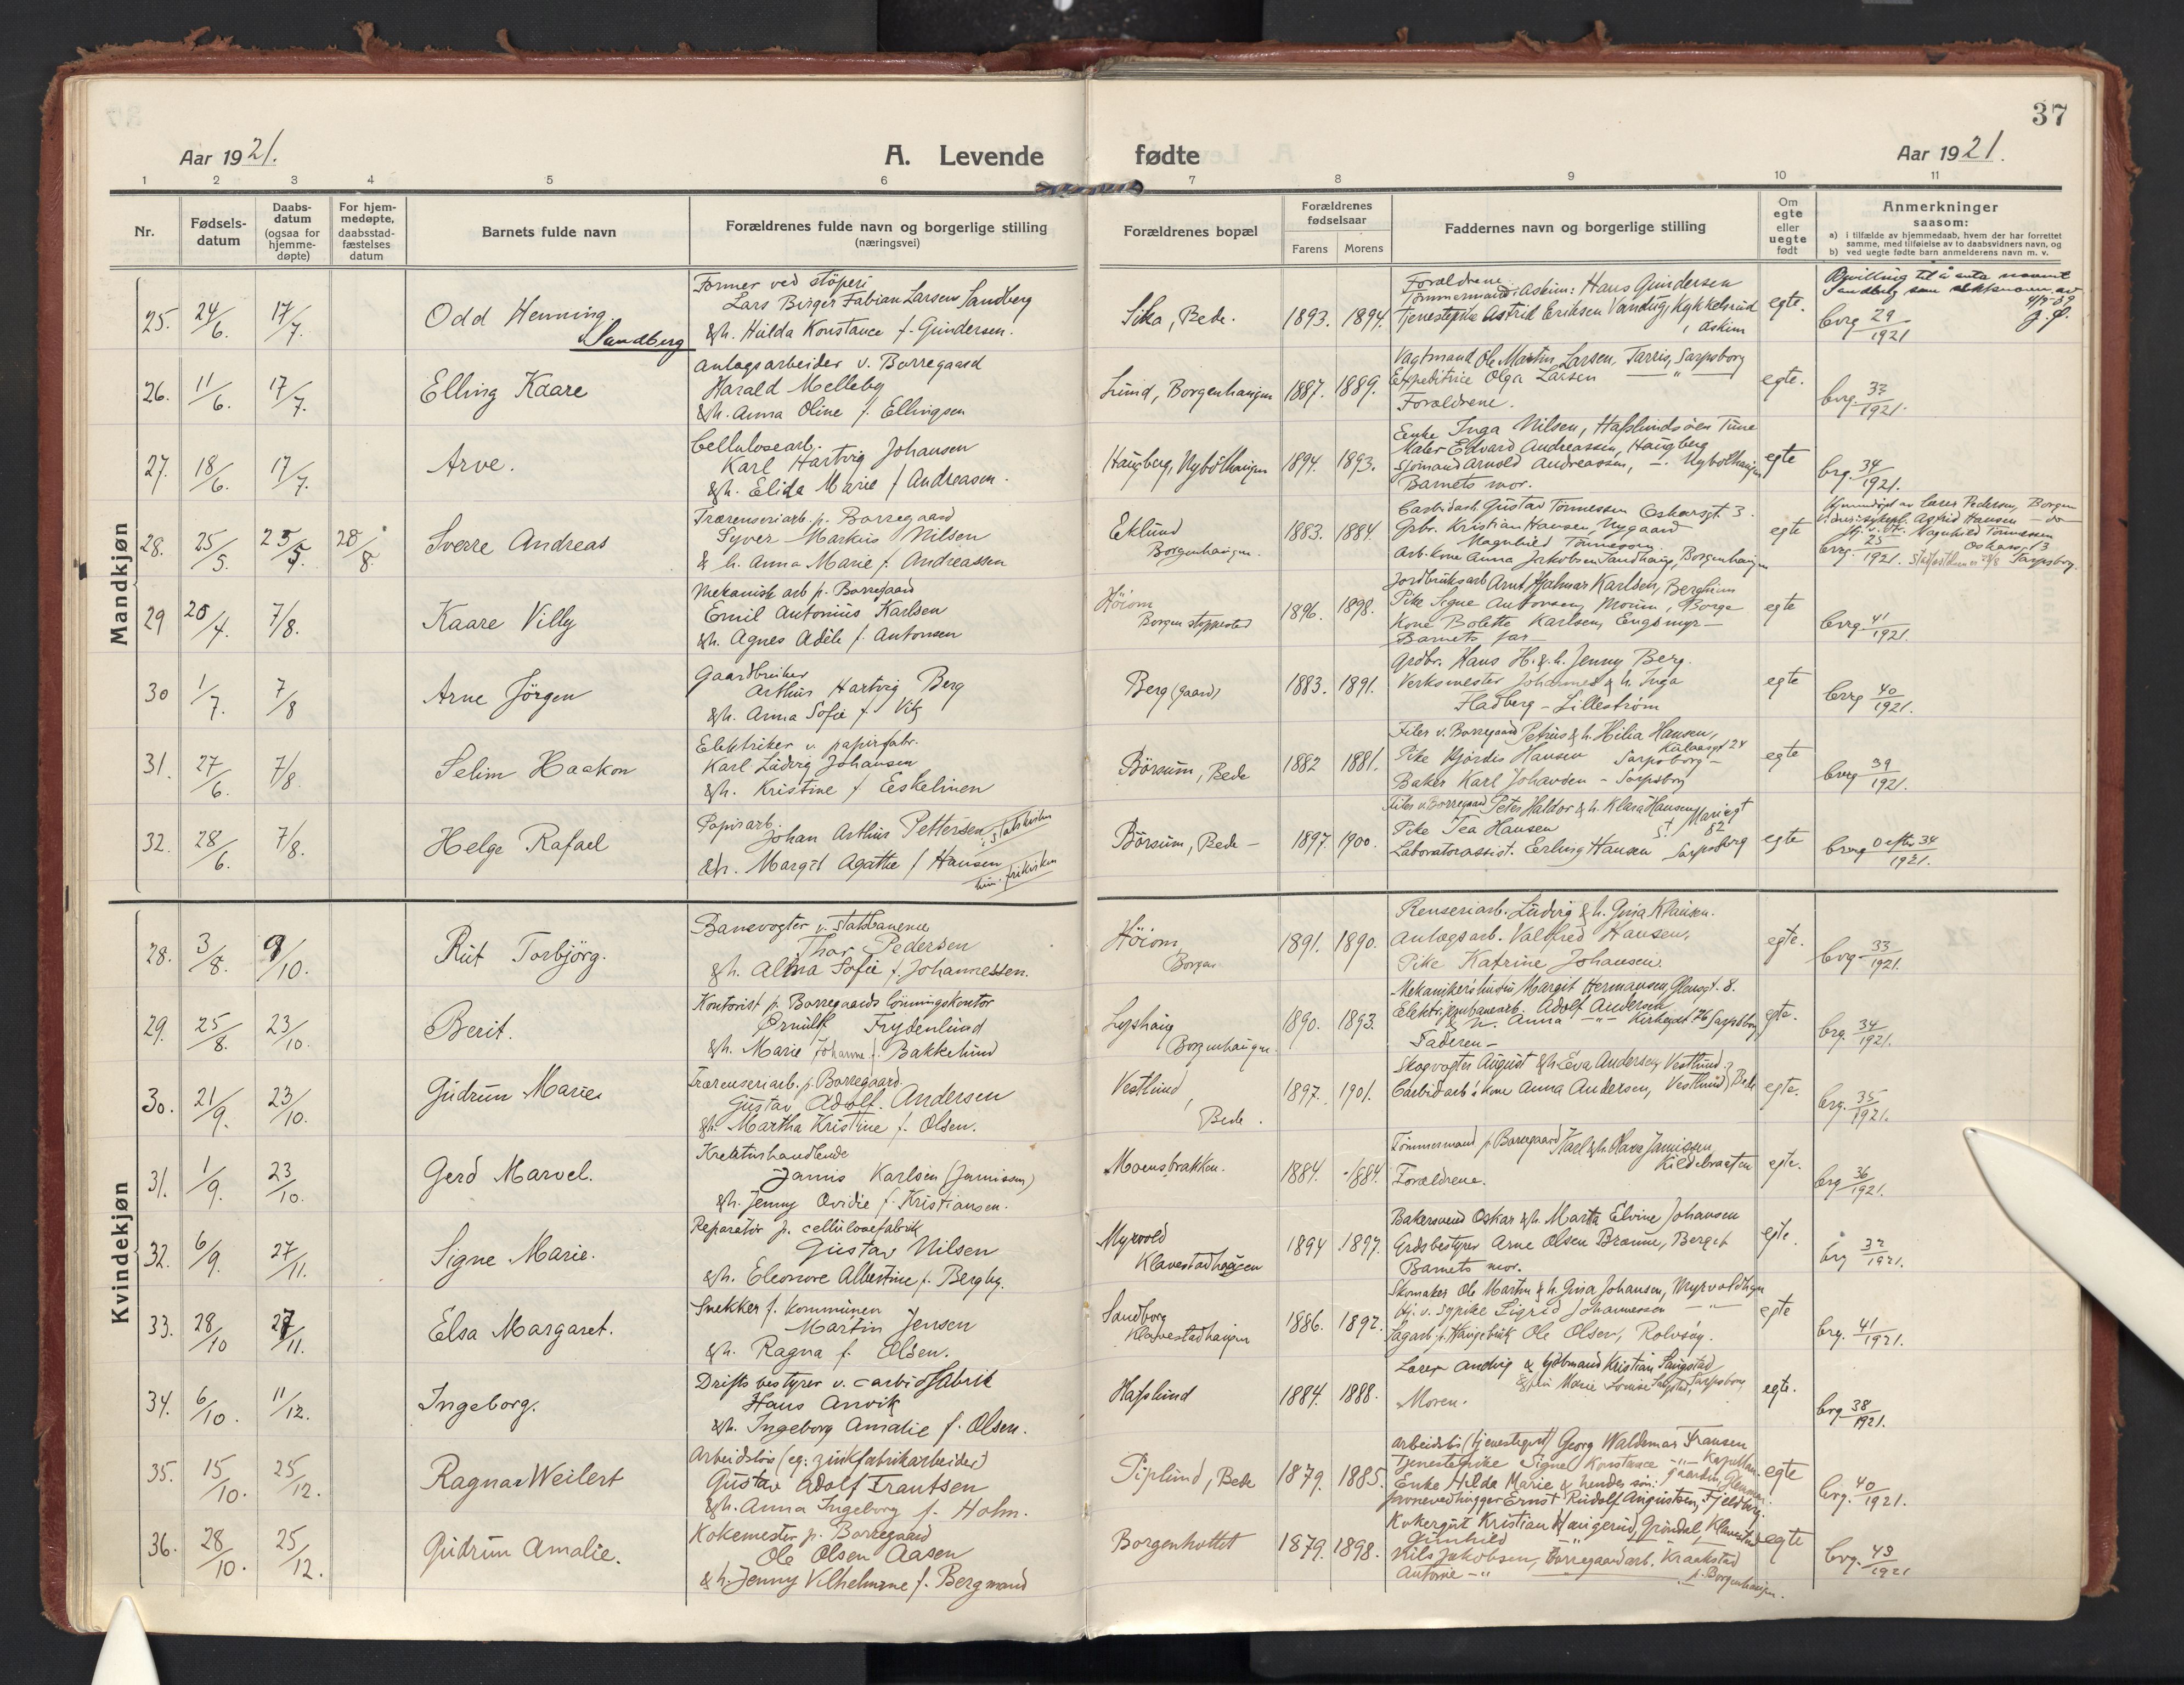 37
Aar 1921.
A. Levende fødte
Aar 1921.
1 2 3 4 5 6 7 8 9 10 11
Nr.
Fødsels-
datum
Daabs-
datum
(ogsaa for
hjemme-
døpte)
For hjem-
medøpte,
daabsstad-
fæstelses
datum
Barnets fulde navn
Forældrenes fulde navn og borgerlige stilling
(næringsvei)
Forældrenes bopæl
Forældrenes
fødselsaar
Farens Morens
Faddernes navn og borgerlige stilling
Om
egte
eller
uegte
født
Anmerkninger
saasom:
a) i tilfælde av hjemmedaab, hvem der har forrettet
samme, med tilføielse av to daabsvidners navn, og
b) ved uegte fødte barn anmelderens navn m. v.
Mandkjøn
25. 24/6. 17/7.
Odd Henning.
Sandberg
Former ved støperi
Lars Birger Fabian Larsen Sandberg
& h. Hulda Konstance f. Gundersen.
Sika, Bede. 1893. 1894.
Forældrene
Tømmermand, Askim: Hans Gundersen
Tjenestepike Astrid Eriksen Vandug, Kykkelsrud
, Askim
egte.
Bevilling til å anta navnet
Sandberg som slektsnavn av
brg 29/1921
26. 11/6. 17/7.
Elling Kaare
Anlægsarbeider v. Borregaard
Harald Melleby
& h. Anna Oline f. Ellingsen
Lund, Borgenhaugen 1887. 1889.
Vagtmand Ole Martin Larsen, Tarris, Sarpsborg
Expeditrice Olga Larsen — " —
Forældrene.
egte.
brg. 33/1921.
27. 18/6. 17/7.
Arve.
Cellulosearb.
Karl Hartvig Johansen
& h. Elida Marie f. Andreasen.
Haugberg, Nybølhaugen 1894. 1893.
Enke Inga Nilsen, Hafslundsøen Tune
Maler Edvard Andreassen, Haugberg
Sjømand Arnold Andreassen, —. Nybølhaugen
Barnets mor.
egte
brg. 34/1921.
28. 25/5. 25/5. 28/8.
Sverre Andreas
Trærenseriarb. p. Borregaard
Syver Markus Nilsen
& h. Anna Marie f. Andreassen
Eklund
Borgenhaugen. 1883. 1884.
Carbidarb. Gustav Tønnessen Oskarsgt 3.
Grbr. Kristian Hansen, Nygaard
Magnhild Tønnessen
Arb. kone Anna Jakobsen Sandhaug, Borgenhaugen
egte
Hjemmedøpt av Lars Pedersen, Borgen
Astrid Hansen — do —
Magnhild Tønnessen
Oskarsgt 3
Sarpsborg.
brg. 25/1921.
29 25/4. 7/8.
Kaare Villy
Mekanisk arb p. Borregaard
Emil Antonius Karlsen
& h. Agnes Adèle f. Antonsen
Høiom
Borgen stoppested 1896. 1898.
Jordbruksarb Arnt Hjalmar Karlsen, Berghum
Pike Signe Antonsen, Moum, Borge
Kone Bolette Karlsen, Engsmyr —
Barnets far —
egte
brg. 41/1921.
30 1/7. 7/8
Arne Jørgen
Gaardbruker
Arthur Hartvig Berg
& h. Anna Sofie f. Vik
Berg (gaard) 1883. 1891.
Grdbr. Hans H. & h. Jenny Berg.
Verksmester Johannes & h. Inga
Fladberg — Lillestrøm
egte
brg 40/1921.
31. 27/6. 7/8.
Selim Haakon
Elektriker v. papirfabr.
Karl Ludvig Johansen
& h. Kristine f Eskelinen
Børsum, Bede 1882 1881.
Filer v. Borregaard Petrus & h. Hilia Hansen,
Pike Hjørdis Hansen Sarpsborg —
Baker Karl Johansen — Sarpsborg
egte
brg 39/1921.
32. 28/6. 7/8.
Helge Rafael
Papirarb.
Johan Arthur Pettersen, statskirken
& h. Margit Agathe f Hansen
hun: frikirken
Børsum, Bede — 1897. 1900.
Filer v. Borregaard Peter Haldor & h. Klara Hansen
Pike Tea Hansen St Mariegt 82
Laboratorassist. Erling Hansen Sarpsborg
egte
brg 0 efter 34/1921.
Kvindekjøn
28. 3/8. 9/10.
Rut Torbjørg.
Banevogter v. statsbanene
Thor Pedersen
& h. Alma Sofie f. Johannessen.
Høiom,
Borgen 1891. 1890.
Renseriarb. Ludvig & h. Gina Klausen.
Anlægsarb. Valfred Hansen.
Pike Katrine Johansen.
egte.
brg 33/1921.
29. 25/8. 23/10.
Berit.
Kontorist p. Borregaards lønningskontor
Ørnulf Frydenlund
& h. Marie Johanne f. Bakkelund
Lyshaug
Borgenhaugen. 1890. 1893.
Mekanikers hustru Margit Hermansen Glengt. 8.
Elektr. jernbanearb. Adolf Andersen
& h. Anna — " — Kirkegt. 26 Sarpsborg
Faderen —
egte.
brg. 34/1921.
30. 21/9. 23/10.
Gudrun Marie.
Trærenseriarb. p. Borregaard.
Gustav Adolf Andersen
& h. Martha Kristine f. Olsen.
Vestlund,
Bede. 1897. 1901.
Skogvogter August & h. Eva Andersen, Vestlund
Carbidarb's kone Anna Andersen, Vestlund } Bede
egte.
brg. 35/1921.
31. 1/9. 23/10.
Gerd Marvel.
Kreaturhandlende
Jamis Karlsen (Jamissen)
& h. Jenny Ovidie f. Kristiansen.
Moensbrakken. 1884. 1884.
Tømmermand p. Borregaard Karl & h. Hava Jamissen
Kildebraaten
Forældrene.
egte.
brg 36/1921.
32. 6/9. 27/11.
Signe Marie.
Reparatør p. cellulosefabrik
Gustav Nilsen
& h. Eleonore Albertine f. Bergby.
Myrvold
Klavestadhaugen 1894 1897.
Bakersvend Oskar & h. Marta Elvine Johansen
Grdsbestyrer Arne Olsen Braune, Berget
Barnets mor.
egte.
brg 37/1921.
33. 28/10 27/11.
Elsa Margaret.
Snekker f. kommunen
Martin Jensen
& h. Ragna f. Olsen.
Sandborg
Klavestadhaugen 1886. 1892.
Skomaker Ole Martin & h. Gina Johansen, Myrvoldhgn
Hj. v. sypike Sigrid Johannessen — " —
Sagarb. p. Haugebruk Ole Olsen, Rolvsøy.
egte
brg. 41/1921.
34. 6/10. 11/12.
Ingeborg.
Driftsbestyrer v. carbidfabrik
Hans Anvik
& h. Ingeborg Amalie f. Olsen.
Hafslund 1884. 1888.
Lærer Andvig & Kristian Saugstad
Marie Louise Saugstad, Sarpsborg
Moren.
egte.
brg 38/1921.
35. 15/10. 25/12.
Ragnar Weilert
Arbeidsløs (eg: zinkfabrikarbeider)
Gustav Adolf Frantsen
& h. Anna Ingeborg f. Holm.
Piplund, Bede 1879. 1885.
Arbeidsløs (tjenestegut) Georg Waldemar Fransen
Tjenestepike Signe Konstance — " — Kapellangaarden, Glemmen.
Enke Hilda Marie & hendes søn:
Ernst Rudolf Augustsen, Fjeldberg.
egte
brg. 40/1921.
36. 28/10. 25/12.
Gudrun Amalie.
Kokemester p. Borregaard
Ole Olsen Aasen
& h. Jenny Vilhelmine f. Bergmand
Borgenhuttet 1879. 1898.
Kokergut Kristian Haugerud, Grøndal, Klavestad
Gunhild — " —
Nils Jakobsen, Borregaardarb. Kraakstad
Antonie — " — p. Borgenhaugen.
egte
brg. 43/1921